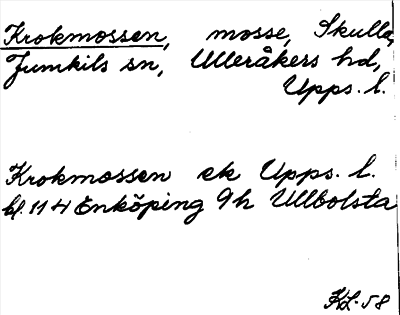 Krokmossen, mosse, Skulla,
Jumkils sn, Ulleråkers hd,
Upps. l.
Krokmossen ek Upps. l.
bl. 114 Enköping 9h Ullbolsta
KL. 58